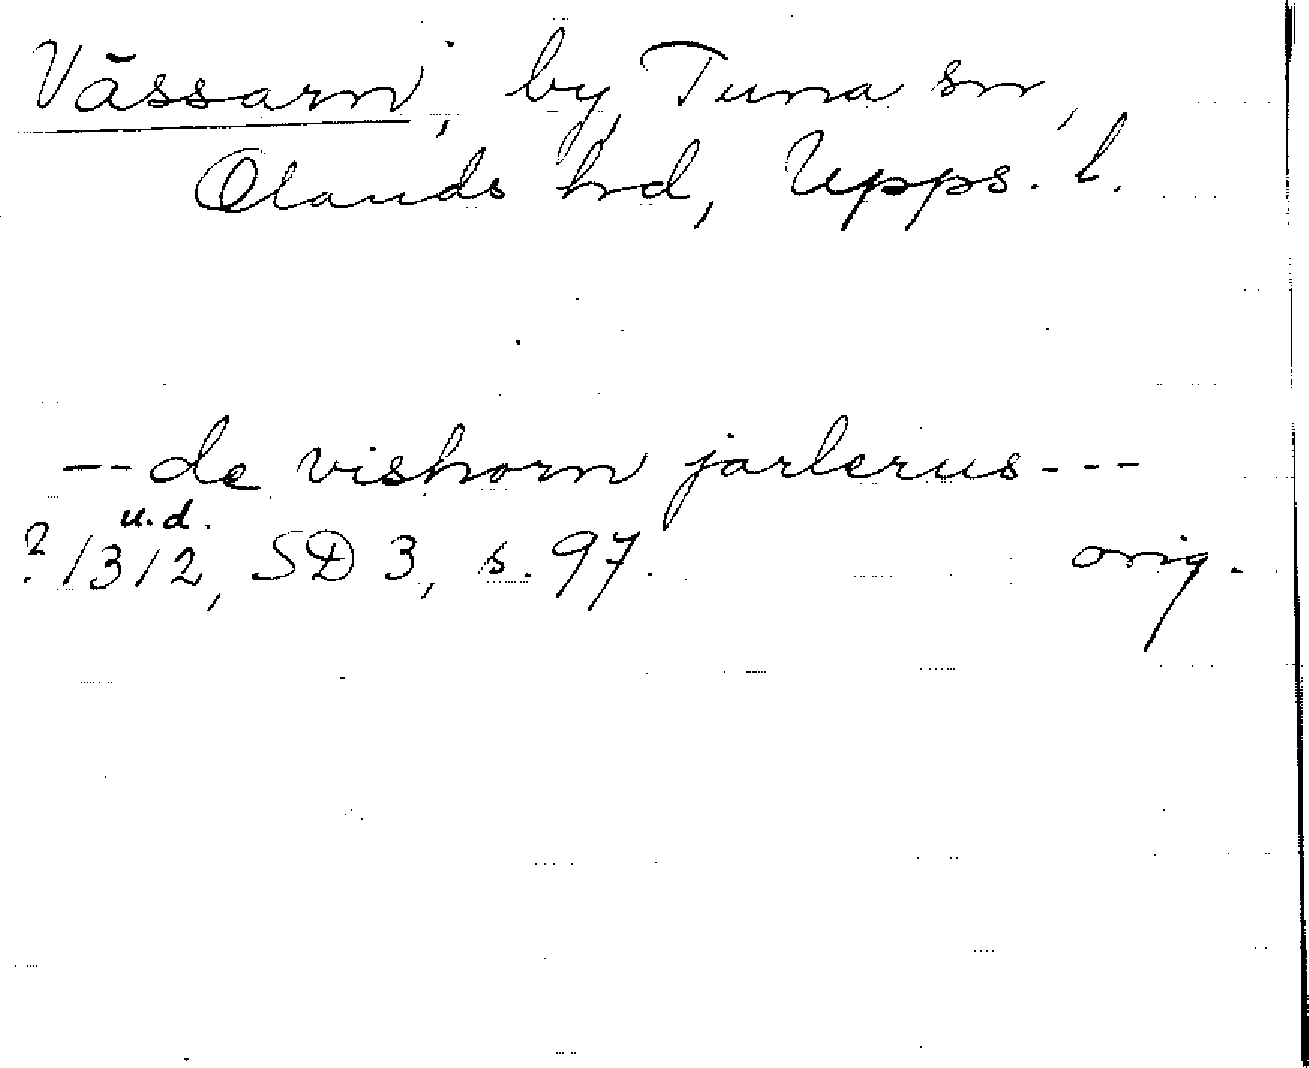 Vässarn, by, Tuna sn,
Olands hd, Upps. l.
-- de vishorn jarlerus ---
u.d.
? 1312, SD 3, s. 97. orig.